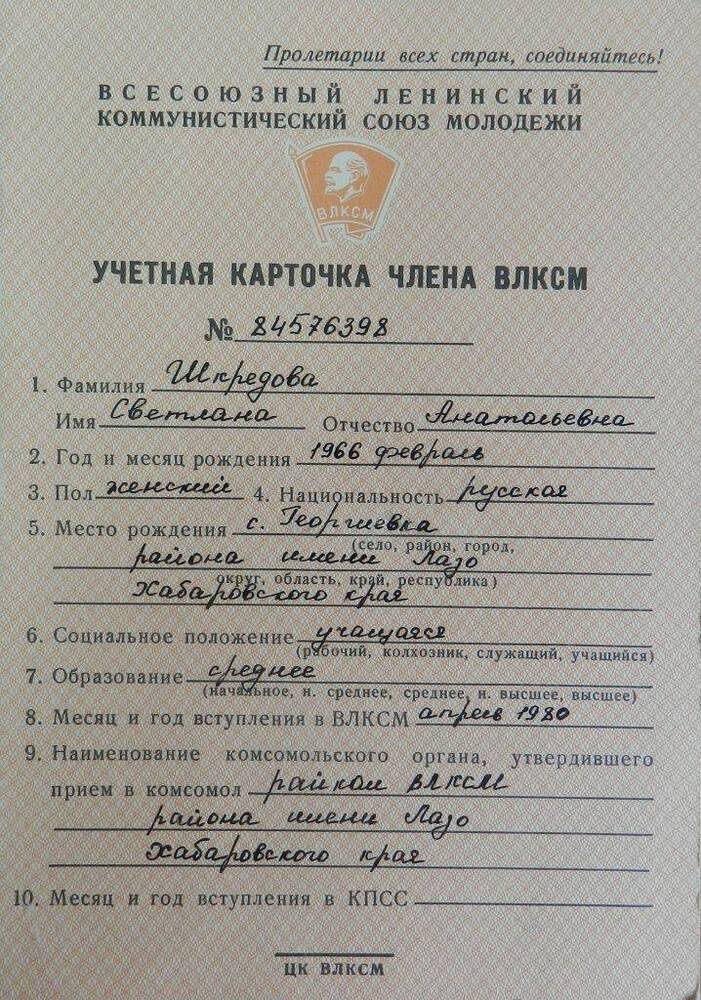 Пролетарии всех стран, соединяйтесь!
ВСЕСОЮЗНЫЙ ЛЕНИНСКИЙ
КОММУНИСТИЧЕСКИЙ СОЮЗ МОЛОДЕЖИ
ВЛКСМ
УЧЕТНАЯ КАРТОЧКА ЧЛЕНА ВЛКСМ
№ 84576398
1. Фамилия Шкредова
Имя Светлана Отчество Анатольевна
2. Год и месяц рождения 1966 февраль
3. Пол женский 4. Национальность русская
5. Место рождения с. Георгиевка
(село, район, город,
района имени Лазо
округ, область, край, республика)
Хабаровского края
6. Социальное положение учащаяся
(рабочий, колхозник, служащий, учащийся)
7. Образование среднее
(начальное, н. среднее, среднее, н. высшее, высшее)
8. Месяц и год вступления в ВЛКСМ апрель 1980
9. Наименование комсомольского органа, утвердившего
прием в комсомол райком ВЛКСМ
района имени Лазо
Хабаровского края
10. Месяц и год вступления в КПСС
ЦК ВЛКСМ